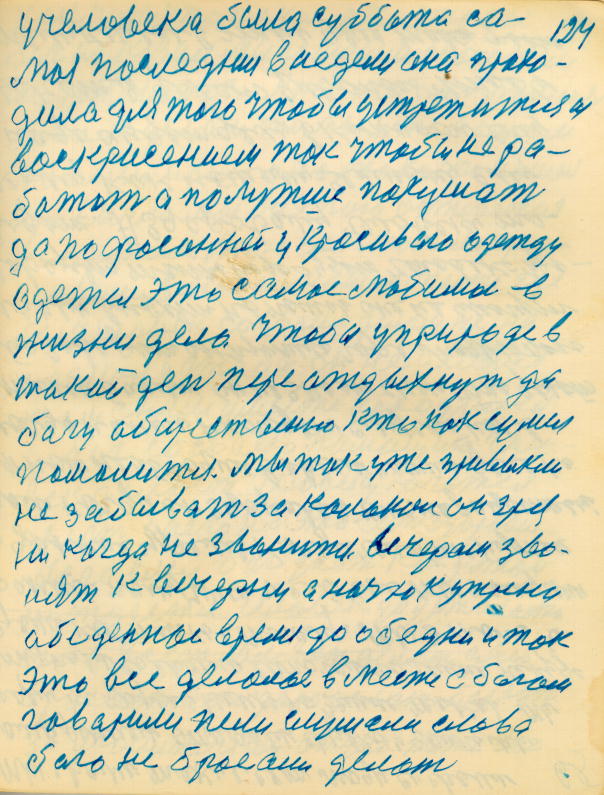 124
у человека была суббота са-
моя последния в недели она прохо-
дила для того чтобы устретится и
воскрисением так чтобы не ра-
ботат а получше покушат
да по фасонней у красивою одежду
одется это самое любимое в
жизни дела чтобы у природе в
такой ден переотдыхнут да
богу общественно кто как сумел
помолится. мы так уже привыкли
не забыват за колокол он зря
ни когда не звонится вечером зво-
нят к вечерни а ночю к утрени
обеденное время до обедни и так
это все делалос в месте с богом
говарили пели слушали слова
бого не бросали делат